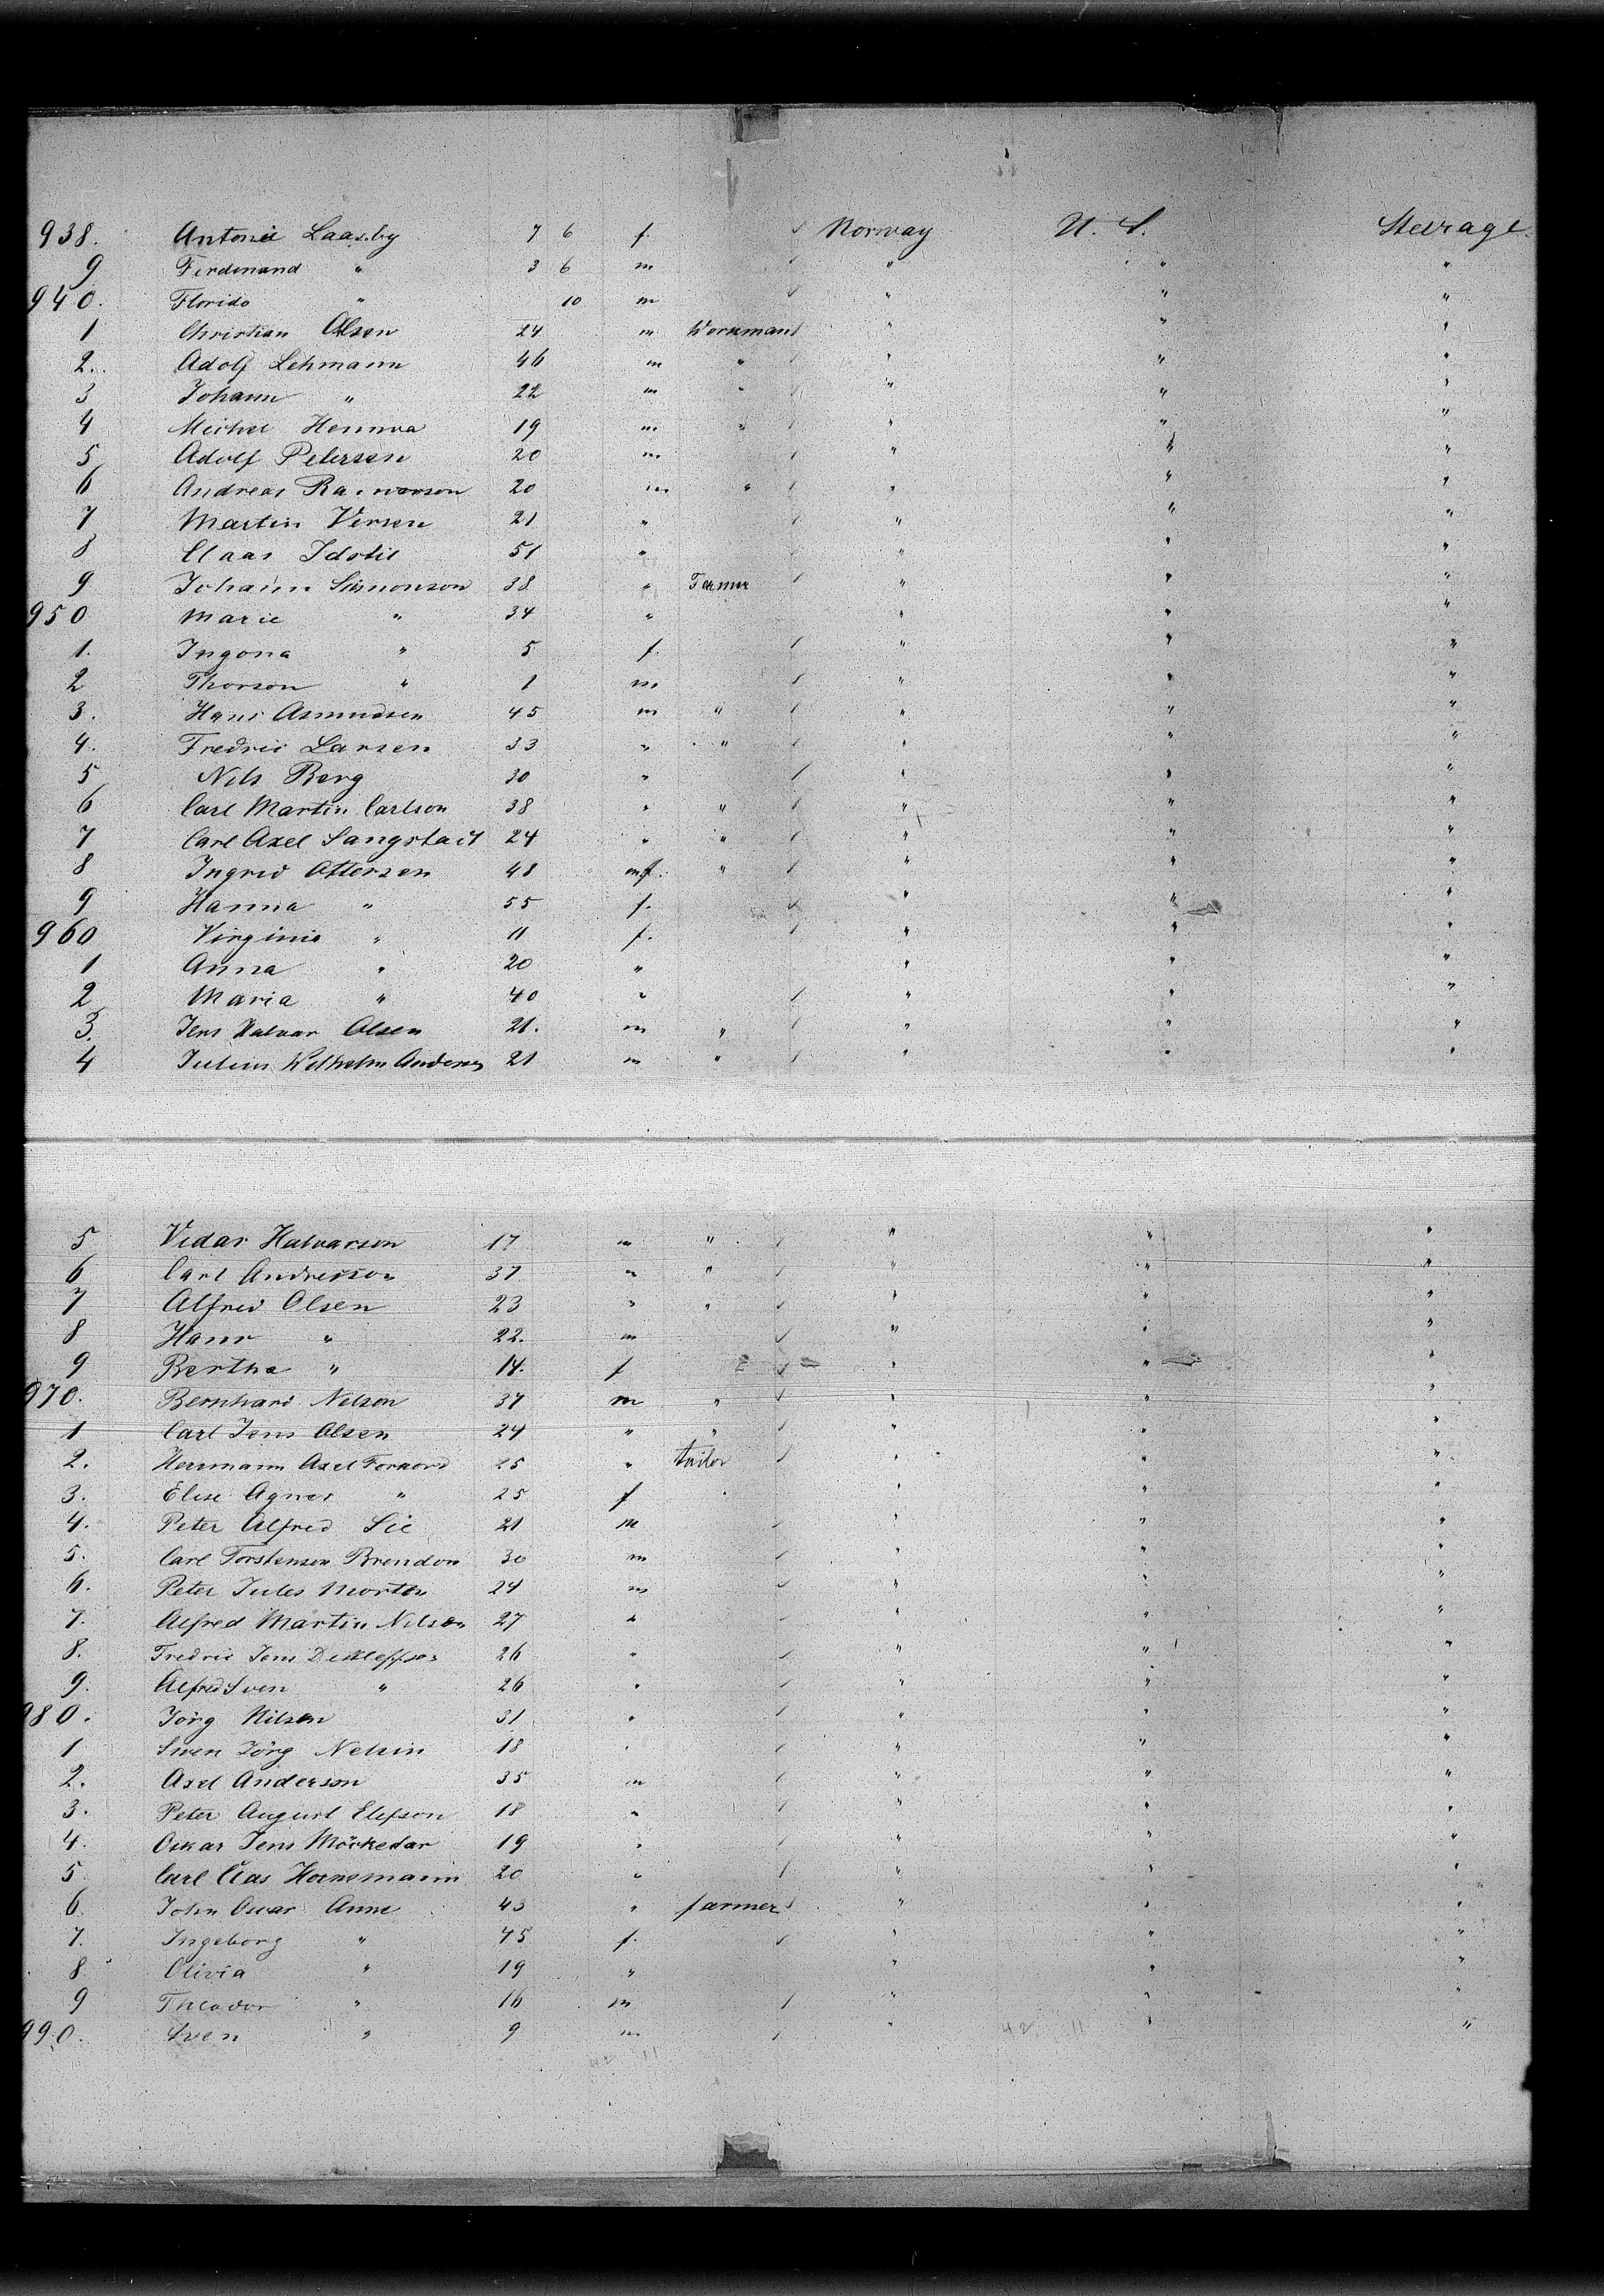 938. Antonie Laasby 7 6 f. ✓ Norway U. S. Steerage.
9 Ferdinand " 3 6 m ✓ " " "
940. Florido " 10 m ✓ " " "
1 Christian Olsen 24 m Workman ✓ " " "
2. Adolf Lehmann 46 m " ✓ " " "
3 Johann " 22 m " ✓ " " "
4 Michel 19 m " ✓ " " "
5 Adolf Petersen 20 m ✓ " " "
6 Andreas 20 m " ✓ " " "
7 Martin Versen 21 " ✓ " " "
8 Claas Idstil 51 " " " "
9 Johann Simonson 38 " Farmer ✓ " " "
950 Marie " 34 " " " "
1. Ingona " 5 f. ✓ " " "
2 Thorson " 1 m ✓ " " "
3. Hans Asmudsen 45 m " ✓ " " "
4. Fredric Larsen 33 " " ✓ " " "
5 Nils Berg 30 " ✓ " " "
6 Carl Martin Carlson 38 " " ✓ " " "
7 Carl Axel Sangstadt 24 " " ✓ " " "
8 Ingrid Ottersen 48 f. " ✓ " " "
9 Hanna " 55 f. ✓ " " "
960 Virginia " 11 f. ✓ " " "
1 Anna " 20 " " " "
2 Maria " 40 " ✓ " " "
3. Jens Halvar Olsen 21. m " ✓ " " "
4 Julius Wilhelm Andersen 21 m " ✓ " " "
5 Vidar Halvarson 17 m " ✓ " " "
6 Carl Andresson 37 " " ✓ " " "
7 Alfred Olsen 23 " " ✓ " " "
8 Hans " 22. m ✓ " " "
9 Bertha " 14. f ✓ " " "
970. Bernhard Nelson 37 m " ✓ " " "
1 Carl Jens Olsen 24 " " ✓ " " "
2. Herrmann Axel 25 " tailor ✓ " " "
3. Elise Agnes " 25 f " " "
4. Peter Alfred Lie 21 m ✓ " " "
5. Carl Torstensen Brendon 30 m ✓ " " "
6. Peter Jules Morten 24 m ✓ " " "
7. Alfred Martin Nilson 27 " ✓ " " "
8. Fredric Jens Detleffsen 26 " ✓ " " "
9. Alfred Sven " 26 " ✓ " " "
980. Jörg Nilsen 31 " ✓ " " "
1 Swen Jörg Nelsin 18 " ✓ " " "
2. Axel Anderson 35 m ✓ " " "
3. Peter August Elefson 18 " ✓ " " "
4. Oskar Jens Mörkedar 19 " ✓ " " "
5 Carl Clas Hornemann 20 " ✓ " " "
6. John Oscar Anne 43 " farmer ✓ " " "
7. Ingeborg " 45 f. ✓ " " "
8 Olivia " 19 " " " "
9 Theodor " 16 m ✓ " " "
990. Sven " 9 m ✓ " 42 11 " "
42 11